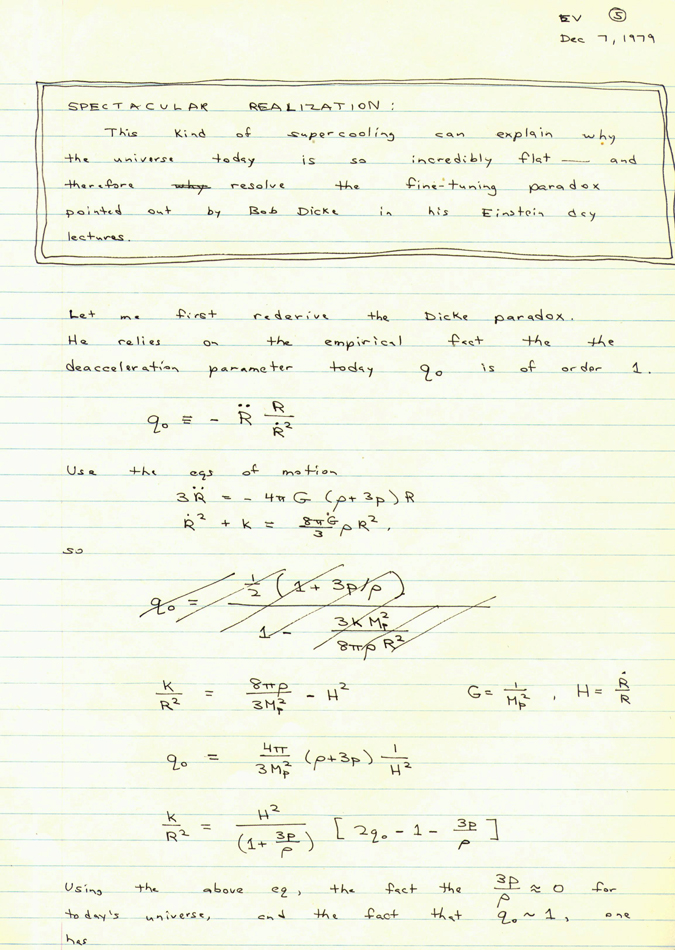 EV ⑤
Dec 7, 1979
SPECTACULAR REALIZATION:
This kind of supercooling can explain why
the universe today is so incredibly flat — and
therefore ~~why~~ resolve the fine-tuning paradox
pointed out by Bob Dicke in his Einstein day
lectures.
Let me first rederive the Dicke paradox.
He relies on the empirical fact the the
deacceleration parameter today q₀ is of order 1.
q₀ ≡ - R̈ R/Ṙ²
Use the eqs of motion
3R̈ = - 4π G (ρ + 3p) R
Ṙ² + k = 8πG/3 ρR²,
so
~~q₀ = ½ (1 + 3p/ρ) / (1 - 3kMₚ²/8πρR²)~~
k/R² = 8πρ/3Mₚ² - H² G = 1/Mₚ², H = Ṙ/R
q₀ = 4π/3Mₚ² (ρ + 3p) 1/H²
k/R² = H²/(1 + 3p/ρ) [2q₀ - 1 - 3p/ρ]
Using the above eq, the fact the 3p/ρ ≈ 0 for
today's universe, and the fact that q₀ ~ 1, one
has